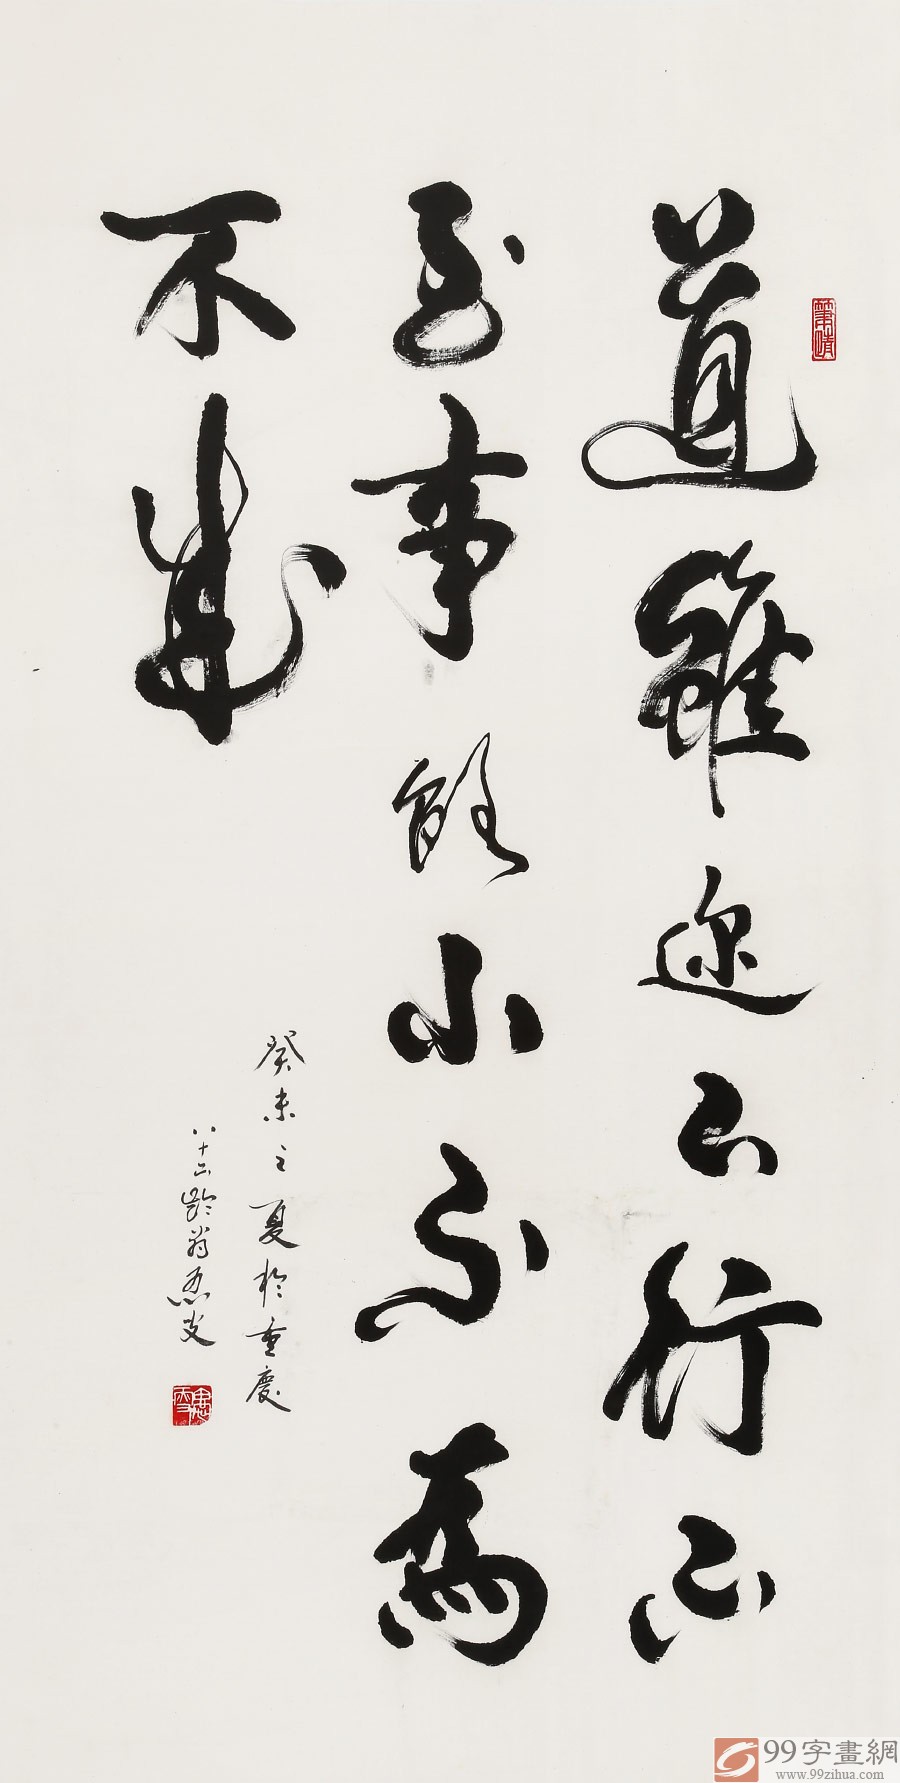 道雖迩不行不
至事雖小不為
不成
癸未之夏於重慶
八十六齡翁
99字畫網
www.99zihua.com